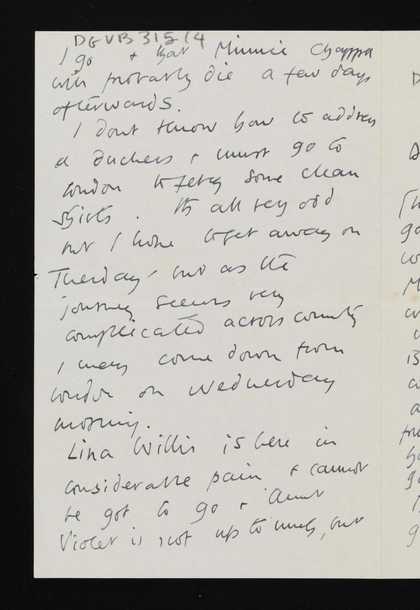 DGVB 315/4
I go + that Minnie
will probably die a few days
afterwards.
I dont know how to address
a duchess + must go to
London to fetch some clean
shirts. Its all very odd
but I hope to get away on
Thursday, but as the
journey seems very
complicated across country
I may come down from
London on Wednesday
morning.
Lina Willis is here in
considerable pain + cannot
be got to go + Aunt
Violet is not up to much, but